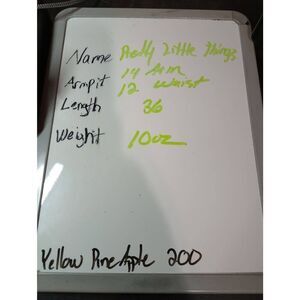 Name Pretty Little Things
Armpit 14 Arm
12 waist
Length 36
Weight 10oz
Yellow Pineapple 200